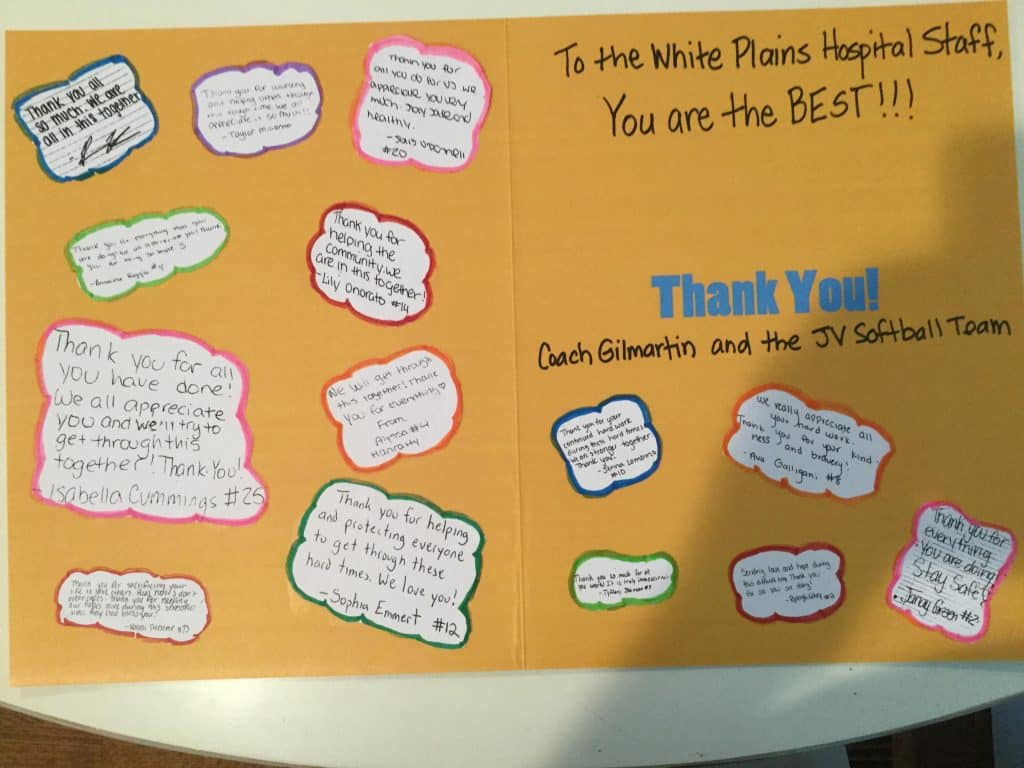 Thank you all
so much. We are
all in this together
Thank you for
and helping
this tough time. We all
appreciate it so much!!
- Taylor
Thank you for
all you do for us. We
appreciate you very
much. Stay safe and
healthy.
#20
Thank you for everything that you
are doing! We all appreciate you! Thank
you for being so brave :)
Thank you for
helping the
community. We
are in this together!
- Lily Onorato #14
Thank you for all
you have done!
We all appreciate
you and we'll try to
get through this
together! Thank You!
- Isabella Cummings #25
We will get through
this together! Thank
you for everything ♡
From
Alyssa #4
Hanratty
Thank you for helping
and protecting everyone
to get through these
hard times. We love you!
- Sophia Emmert #12
Thank you for sacrificing your
life to save others.
To the White Plains Hospital Staff,
You are the BEST!!!
Thank You!
Coach Gilmartin and the JV Softball Team
Thank you for your
continued hard work
during these hard times
stronger together
Thank you!
- Jenna
#10
We really appreciate all
your hard work.
Thank you for your kind-
ness and bravery!
- Ava Galligani #8
Thank you so much for all
you do! It is truly
- Tiffany
Sending love and hope during
this difficult time. Thank you
for all you are doing!
Thank you for
everything
You are doing!
Stay Safe!